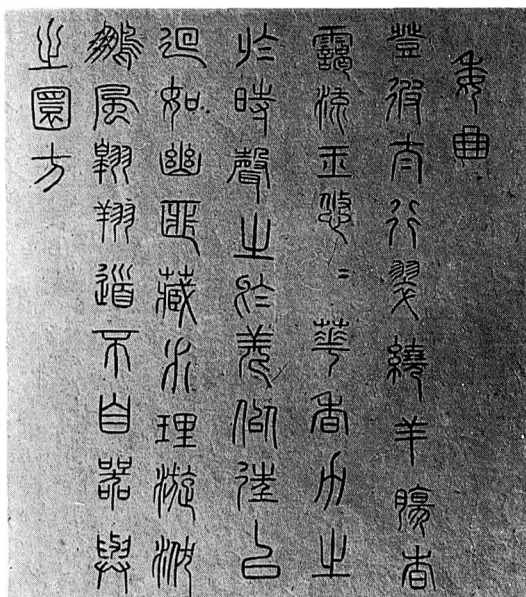 委曲
登彼太行翠繞羊腸杳
靄流玉悠〻華香力之
於時聲之於羌似往已
迴如幽匪藏水理漩洑
鵬風翱翔道不自器與
之圜方